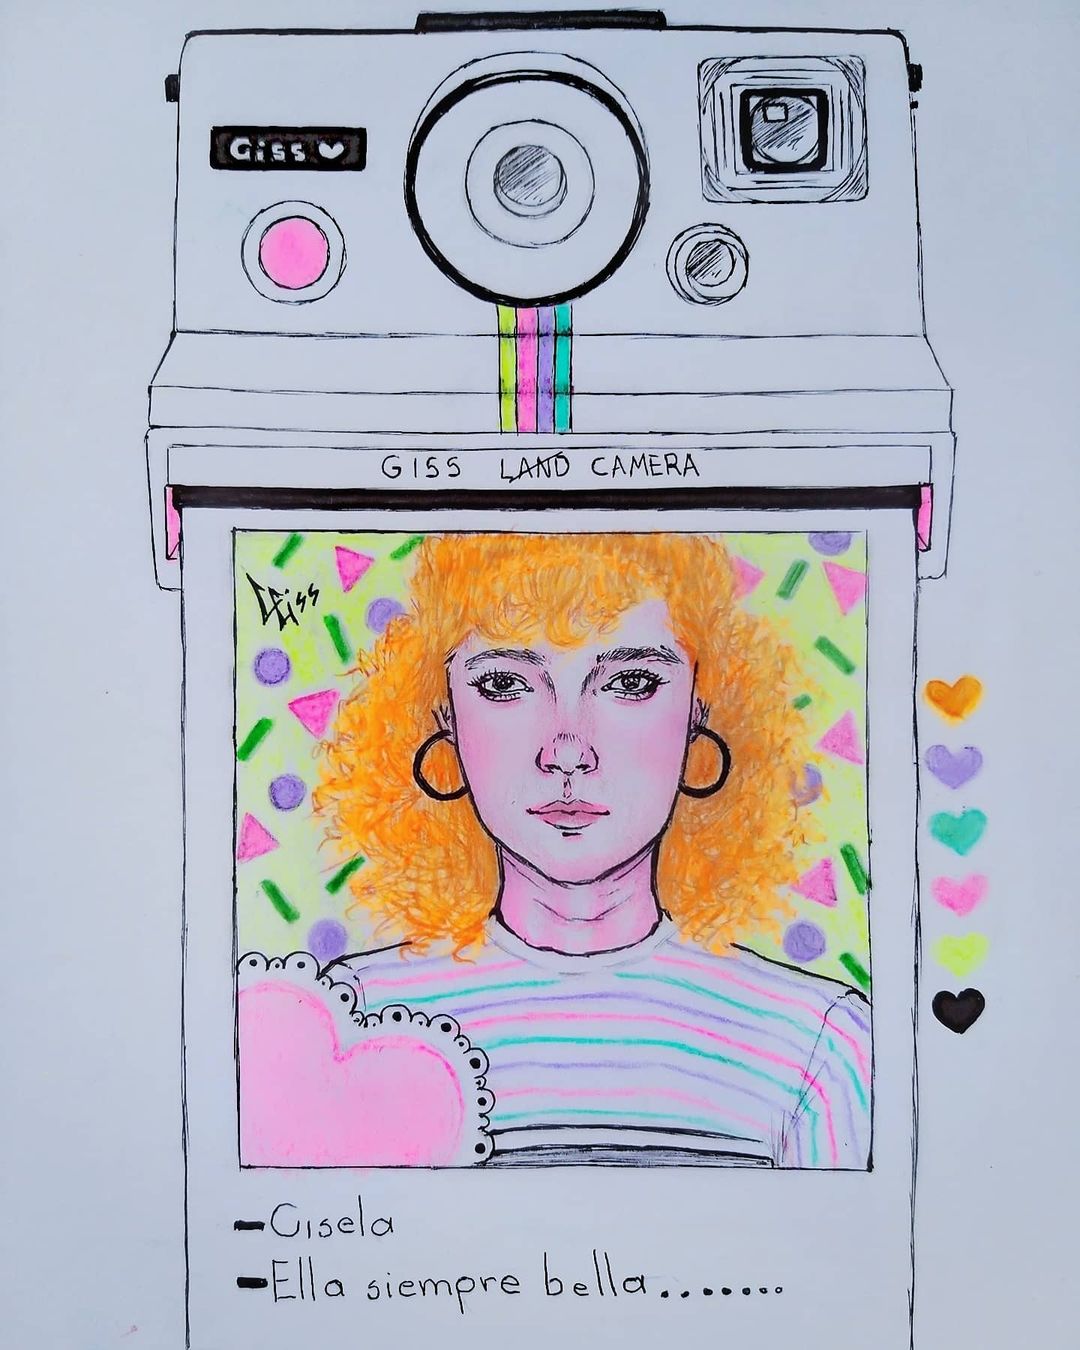 Giss
GISS LAND CAMERA
Giss
-Gisela
-Ella siempre bella........